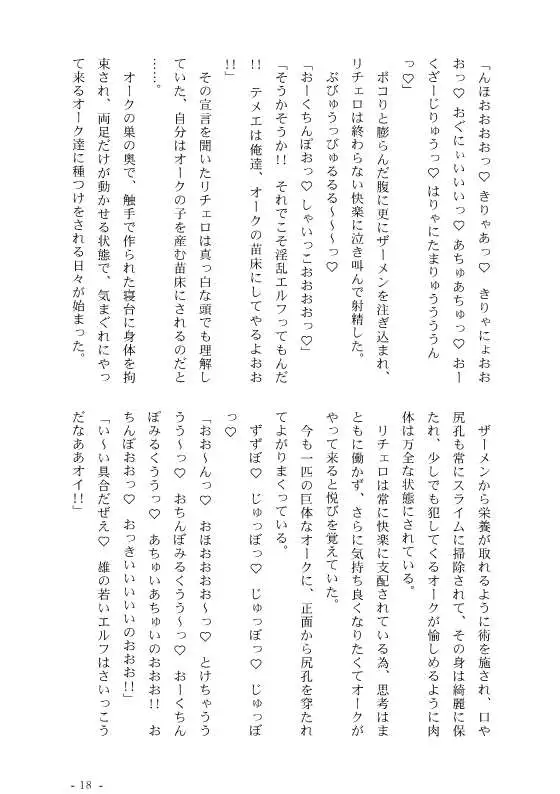 「んほおおおおっ♡ きりゃあっ♡ きりゃにょおお
おっ♡ おぐにぃいいいっ♡ あちゅあちゅっ♡ おー
くざーじりゅうっ♡ はりゃにたまりゅうううん
っ♡」
ボコりと膨らんだ腹に更にザーメンを注ぎ込まれ、
リチェロは終わらない快楽に泣き叫んで射精した。
ぶびゅうっびゅるるる～～～っ♡
「おーくちんぽおっ♡ しゃいっこおおおおっ♡」
「そうかそうか!! それでこそ淫乱エルフってもんだ
!! テメエは俺達、オークの苗床にしてやるよおお
!!」
その宣言を聞いたリチェロは真っ白な頭でも理解し
ていた、自分はオークの子を産む苗床にされるのだと
……。
オークの巣の奥で、触手で作られた寝台に身体を拘
束され、両足だけが動かせる状態で、気まぐれにやっ
て来るオーク達に種つけをされる日々が始まった。
ザーメンから栄養が取れるように術を施され、口や
尻孔も常にスライムに掃除されて、その身は綺麗に保
たれ、少しでも犯してくるオークが愉しめるように肉
体は万全な状態にされている。
リチェロは常に快楽に支配されている為、思考はま
ともに働かず、さらに気持ち良くなりたくてオークが
やって来ると悦びを覚えていた。
今も一匹の巨体なオークに、正面から尻孔を穿たれ
てよがりまくっている。
ずずぼ♡ じゅっぼっ♡ じゅっぼっ♡ じゅっぼ
っ♡
「おお～んっ♡ おほおおおお～っ♡ とけちゃうう
うう～っ♡ おちんぽみるくうう～っ♡ おーくちん
ぽみるくううっ♡ あちゅいあちゅいのおおお!! お
ちんぽおおっ♡ おっきいいいいいのおおお!!」
「い～い具合だぜえ♡ 雄の若いエルフはさいっこう
だなああオイ!!」
- 18 -